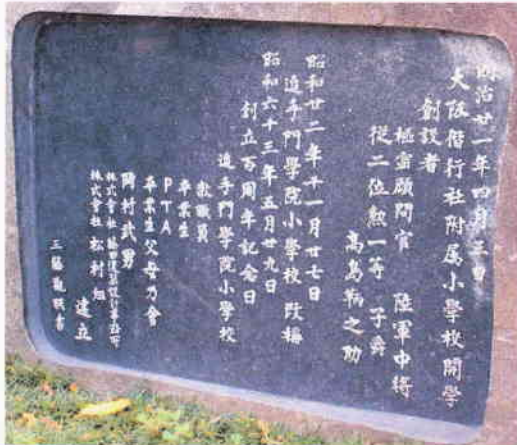 明治廿一年四月三日
大阪偕行社附属小學校開學
創設者
樞密顧問官 陸軍中将
従二位勲一等 子爵
高島鞆之助
昭和廿二年十一月廿七日
追手門學院小學校 改稱
昭和六十三年五月廿九日
創立百周年記念日
追手門學院小學校
教職員
卒業生
PTA
卒業生父母乃會
岡村武男
株式會社
株式會社 松村組
建立
三藤觀映書